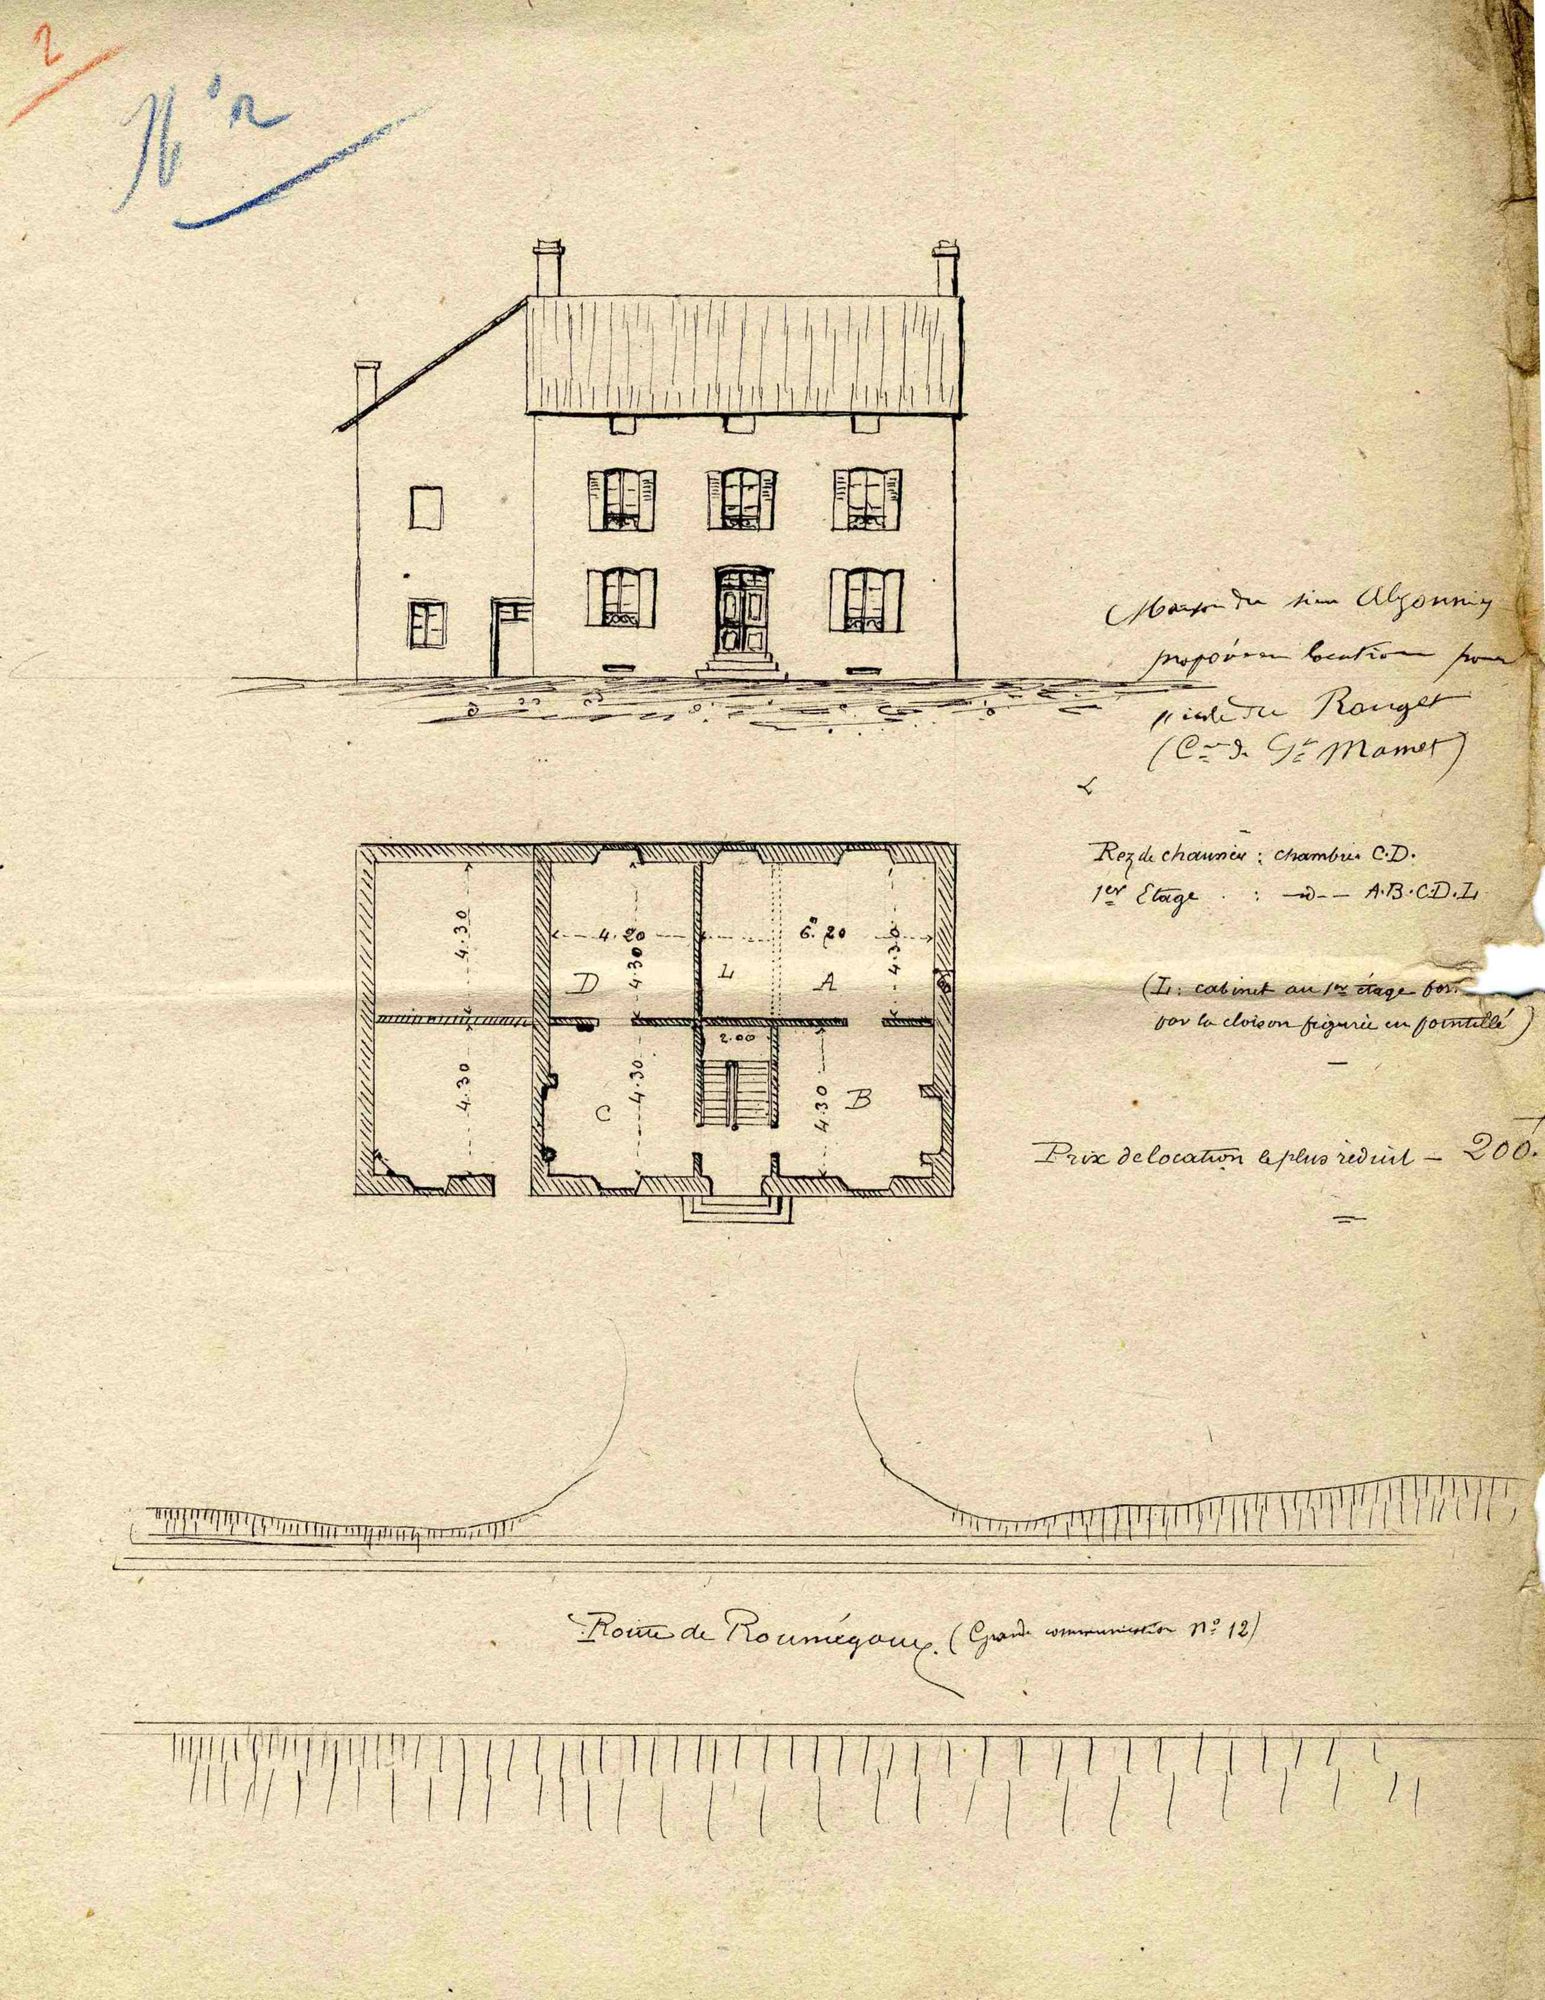 2
N° 2
Maison du sieur Algonniez
proposée en location pour
école du Rouget
(Cne de St Mamet)
Rez de chaussée : chambres C.D.
1er Etage : -id-- A.B.C.D.L
(L: cabinet au 1er étage for
par la cloison figurée en pointillé)
Prix de location le plus réduit - 200.
4.30
4.20
6m 20
4.30
4.30
D
L
A
2.00
4.30
4.30
4.30
C
B
Route de Roumégoux. (Grande communication N° 12)